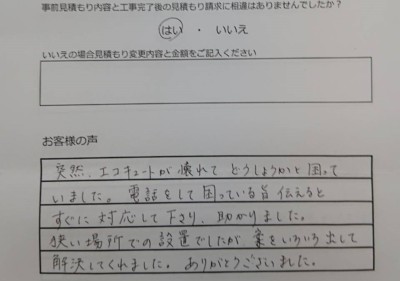 事前見積もり内容と工事完了後の見積もり請求に相違はありませんでしたか？
はい ・ いいえ
いいえの場合見積もり変更内容と金額をご記入ください
お客様の声
突然、エコキュートが壊れて どうしようかと困って
いました。電話をして困っている旨伝えると
すぐに対応して下さり、助かりました。
狭い場所での設置でしたが 案をいろいろ出して
解決してくれました。ありがとうございました。